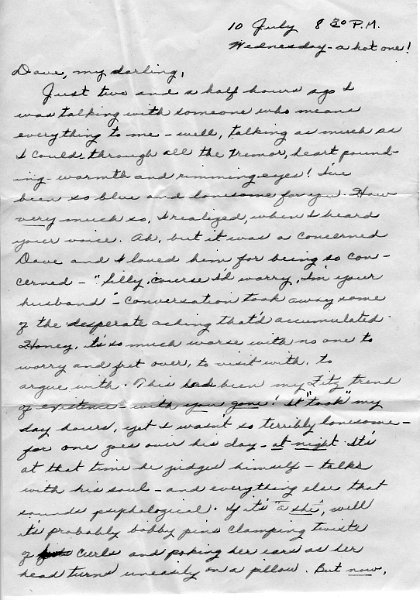 10 July 8 30 P.M.
Wednesday - a hot one!
Dave, my darling,
Just two and a half hours ago I
was talking with someone who means
everything to me - well, talking as much as
I could through all the tremor, heart pound-
ing warmth and rimming eyes! I've
been so blue and lonesome for you. How
very much so, I realized, when I heard
your voice. Ah, but it was a concerned
Dave and I loved him for being so con-
cerned - "Silly, course I'd worry, I'm your
husband" - Conversation took away some
of the desperate aching that'd accumulated.
Honey, its so much worse with no one to
worry and fret over, to visit with, to
argue with. This has been my trend
of existence - with you gone! It took my
day hours, yet I wasn't so terribly lonesome -
for one goes over his day - at night. Its
at that time he judges himself - talks
with his soul - and everything else that
sounds psyhological. If it's a she, well
its probably bobby pins clamping twists
of curls and poking her ears as her
head turns uneasily on a pillow. But now,